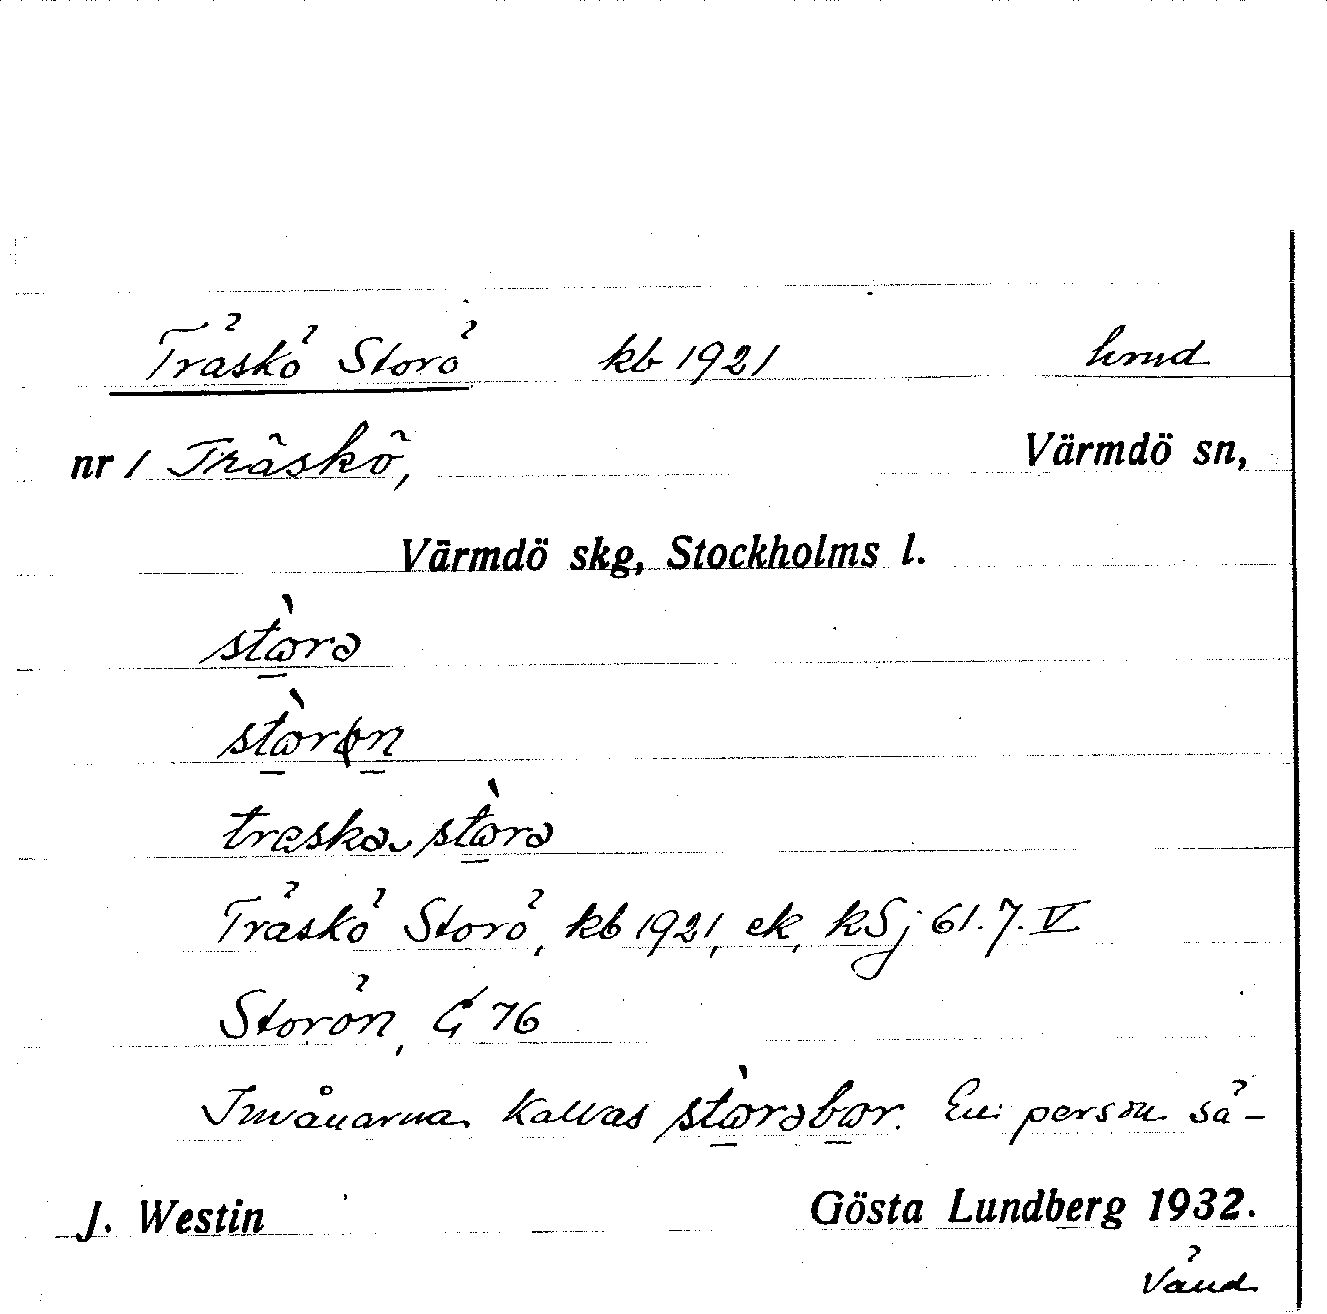 Träskö Storö kb 1921 hmd
nr 1 Träskö, Värmdö sn,
Värmdö skg, Stockholms l.
stɷ̀rə
stɷ̀rən
træskə stɷ̀rə
Träskö Storö, kb 1921, ek, kSj 61.7.V
Storön, G 76
Invånarna kallas stɷ̀rəbɷr. En person sä-
J. Westin Gösta Lundberg 1932.
Vänd